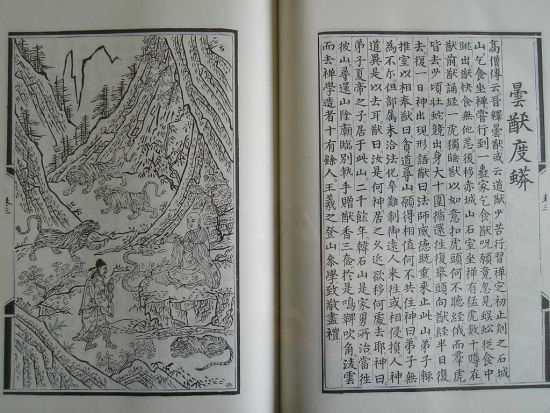 曇猷度蟒
高僧傳云晉釋曇猷或云道猷少苦行習禪定初止剡之石城
山乞食坐禪嘗行到一蠱家乞食猷呪願竟忽見蜈蚣從食中
跳出猷快食無他忌後移赤城山石室坐禪有猛虎數十蹲在
猷前猷誦經一虎獨睡猷以如意扣虎頭何不聽經俄而羣虎
皆去少頃壯蛇競出身大十圍循還往復舉頭向猷經半日復
去復一日神出現形語猷曰法師威德既重來止此山弟子輒
推室以相奉猷曰貧道尋山願得相值何不共住神曰弟子無
為不尔但部屬未洽法化卒難制御遠人來往或相侵損人神
道異是以去耳猷曰汝是何神居之久近欲移何處去耶神曰
弟子夏帝之子居於此山二千餘年韓石山是家舅所治當往
彼山尋還山陰廟臨別執手贈猷香三奩於是鳴鞞吹角淩雲
而去禪學造者十有餘人王羲之登山參學致敬盡禮